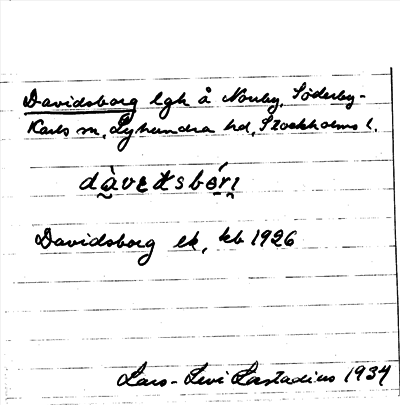 Davidsborg lgh å Norrby, Söderby-
Karls sn, Lyhundra hd, Stockholms l.
dàvɛtsbórı
Davidsborg ek, kb 1926
Lars-Levi Læstadius 1934